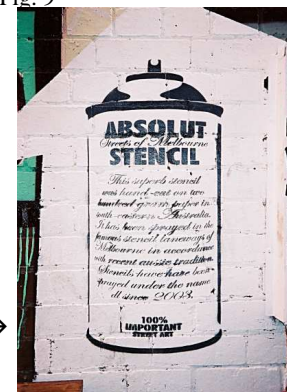 Fig. 9
ABSOLUT
Streets of Melbourne
STENCIL
This superb stencil
was hand-cut on two
hundred gram paper in
south-eastern Australia.
It has been sprayed in the
famous stencil laneways of
Melbourne in accordance
with recent aussie tradition.
Stencils have have been
sprayed under the name
all since 2003.
100%
IMPORTANT
STREET ART